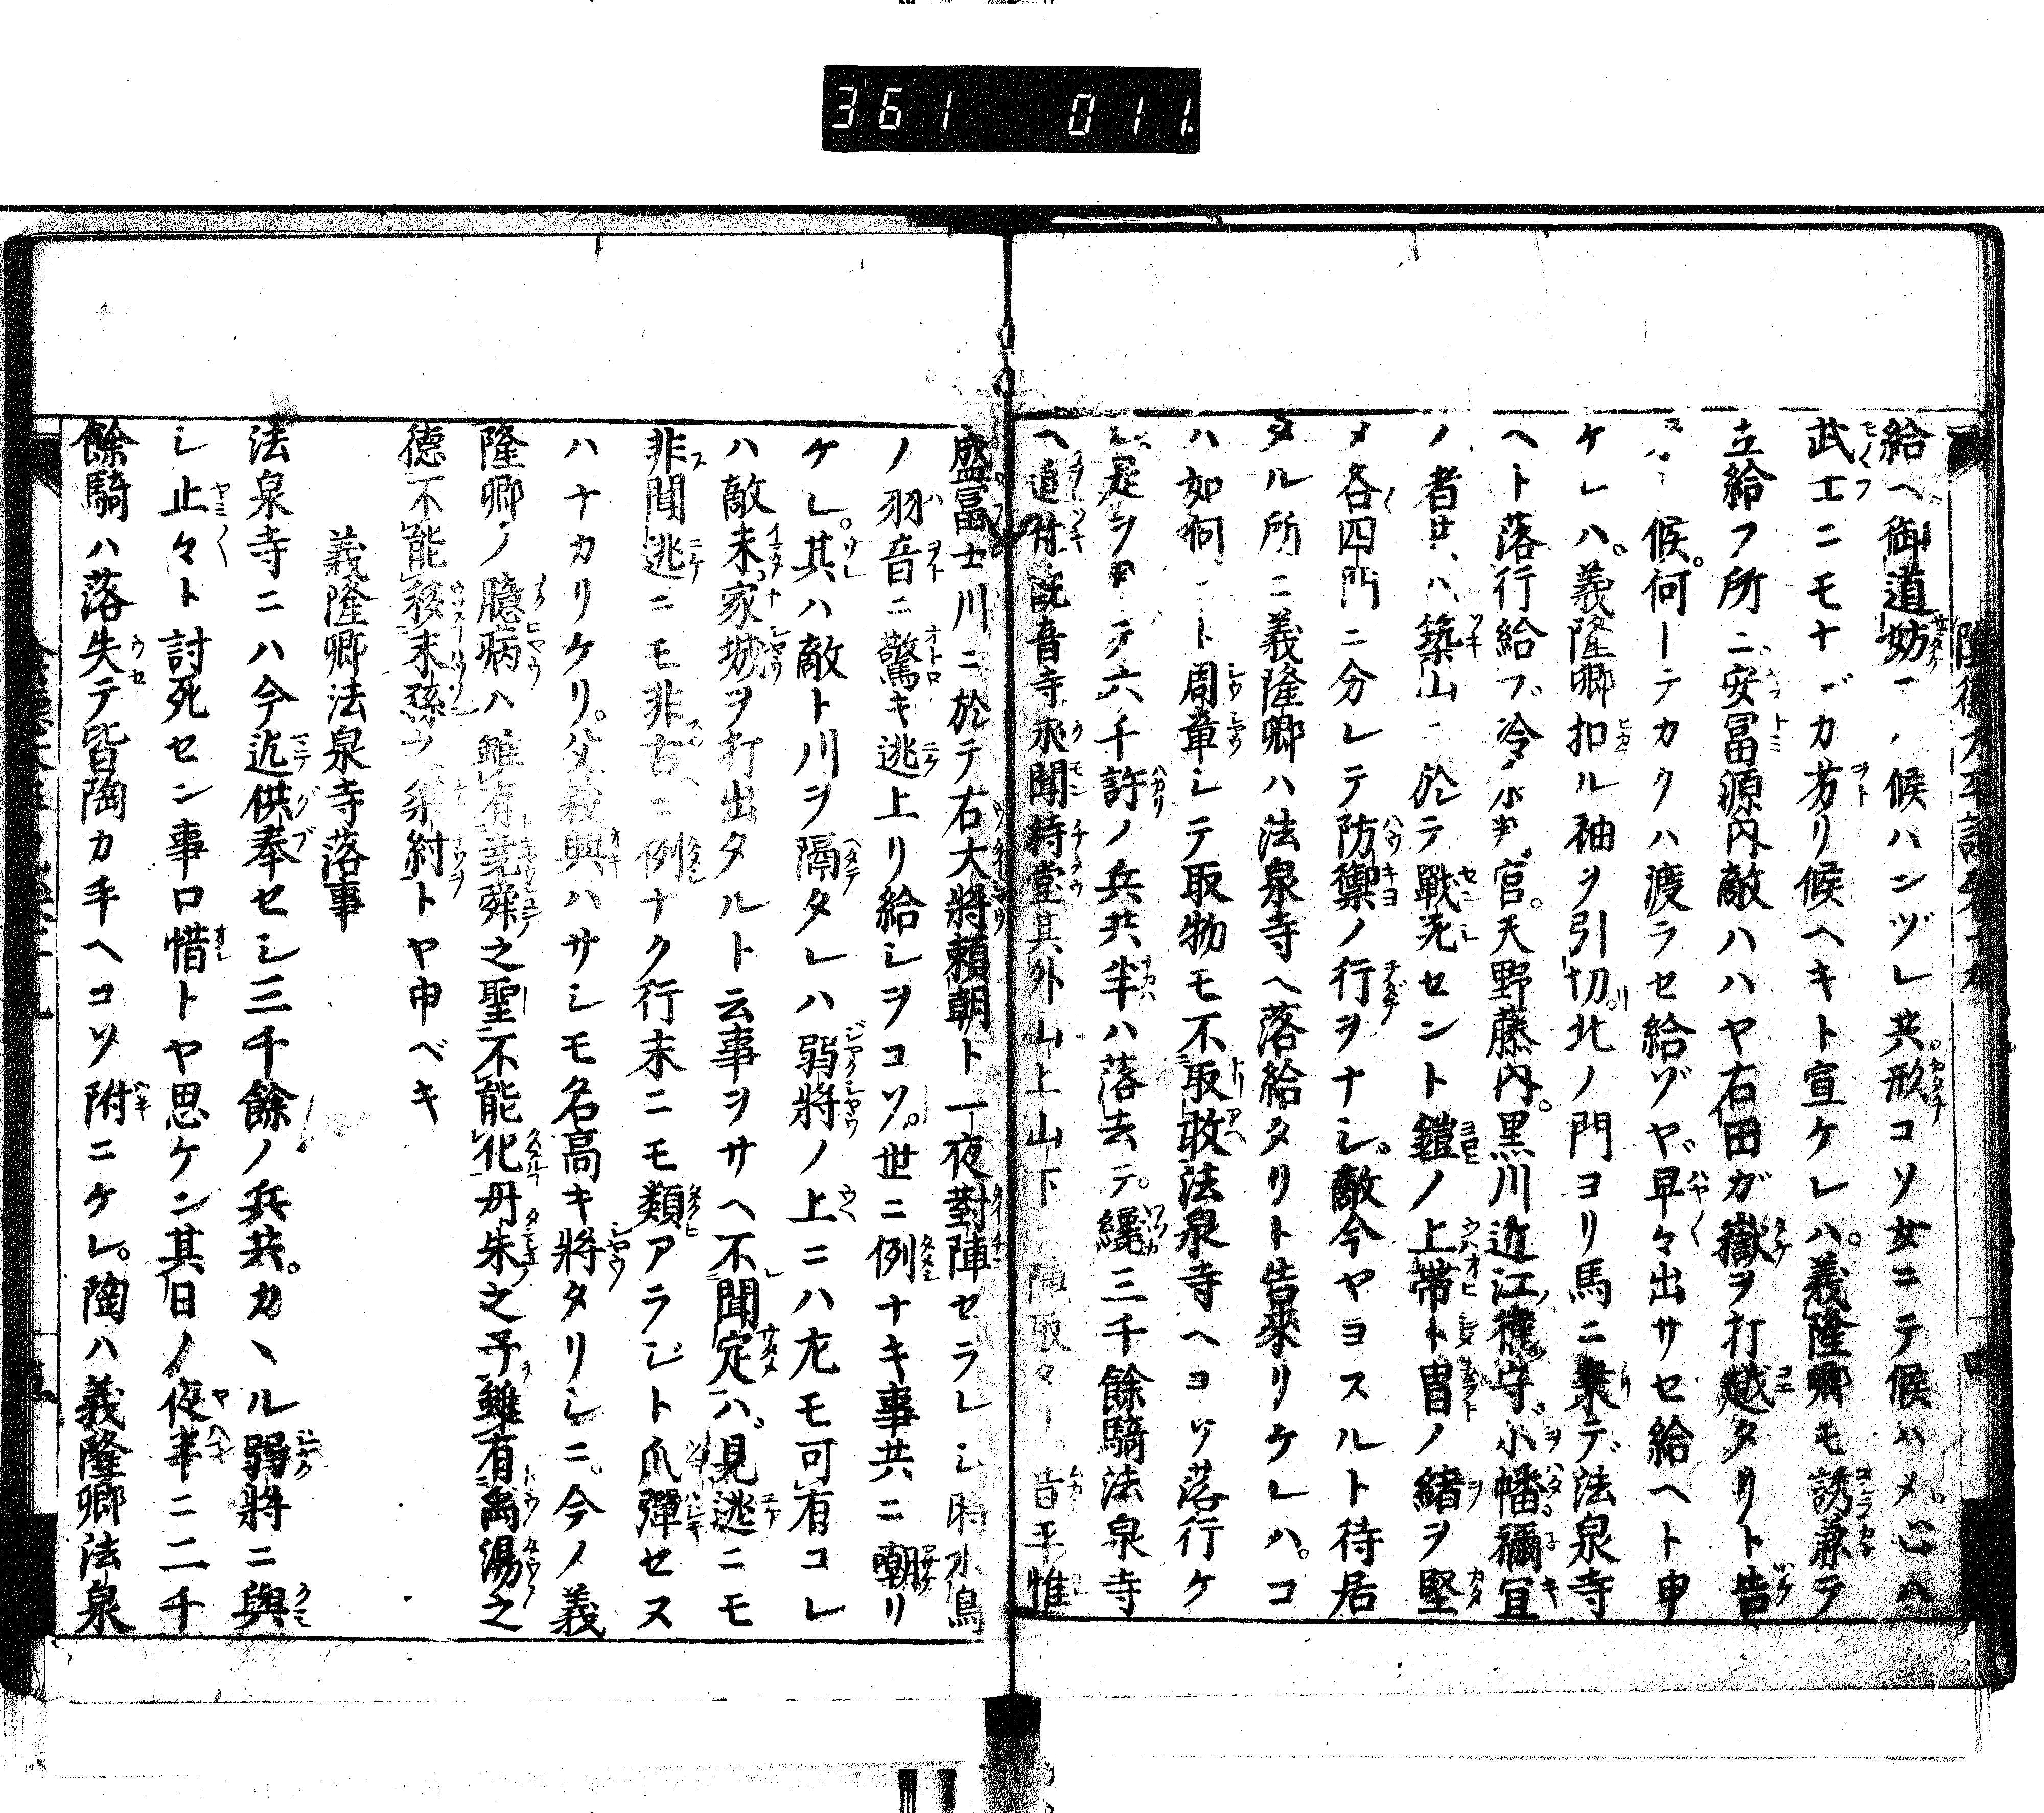 361 011
給ヘ御道妨ニハ候ハンヅレ共形コソ女ニテ候ハメ心ハ
武士ニモナドカ劣リ候ヘキト宣ケレハ義隆卿モ誘兼テ
立給フ所ニ安冨源内敵ハハヤ右田ガ嶽ヲ打越タリト告
候何トテカクハ渡ラセ給ゾヤ早々出サセ給ヘト申
ケレハ義隆卿扣ル袖ヲ引切リ北ノ門ヨリ馬ニ乗テ法泉寺
ヘト落行給フ冷小判官天野藤内黒川近江守小幡禰宜
ノ者共ハ築山ニ於テ戰死セント鎧ノ上帯ト冑ノ緒ヲ堅
メ各四門ニ分レテ防禦ノ行ヲナシ敵今ヤヨスルト待居
タル所ニ義隆卿ハ法泉寺ヘ落給タリト告來リケレハコ
ハ如何ニト周章シテ取物モ不取敢法泉寺ヘヨリ落行ケ
是ヲ テ六千許ノ兵共半ハ落去テ纔三千餘騎法泉寺
ヘ追付 音寺 聞持堂其外山上山下ニ陣取 昔平惟
盛冨士川ニ於テ右大將頼朝ト一夜對陣セラレシ時水鳥
ノ羽音ニ驚キ逃上リ給シヲコソ世ニ例ナキ事共ニ嘲リ
ケレ其ハ敵ト川ヲ隔タレハ弱將ノ上ニハ尤モ可有コレ
ハ敵未家城ヲ打出タルト云事ヲサヘ不聞定ハ見逃ニモ
非聞逃ニモ非古ニ例ナク行末ニモ類アラジト爪彈セス
ハナカリケリ父義興ハサシモ名高キ將タリシニ今ノ義
隆卿ノ臆病ハ雖有堯舜之聖不能化丹朱之予雖有禹湯之
德不能移末孫ノ桀紂トヤ申ベキ
義隆卿法泉寺落事
法泉寺ニハ今迄供奉セシ三千餘ノ兵共カヽル弱將ニ與
シ止々ト討死セン事口惜トヤ思ケン其日ノ夜半ニ二千
餘騎ハ落失テ皆陶カ手ヘコソ附ニケレ陶ハ義隆卿法泉